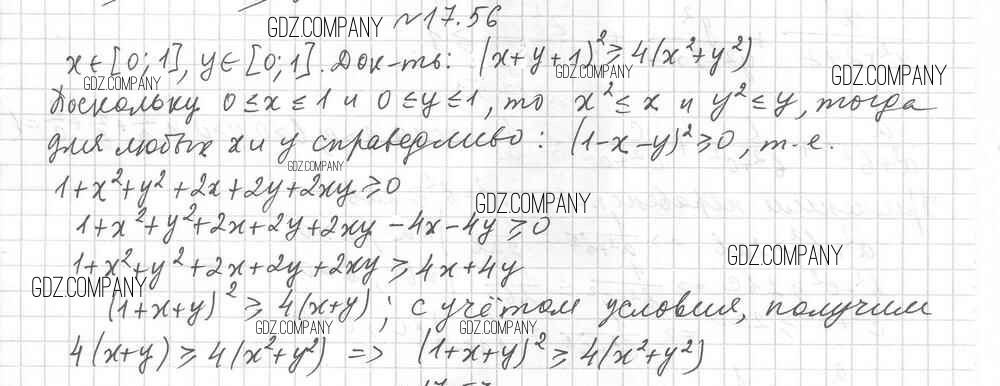 GDZ.COMPANY №17.56
x∈[0;1], y∈[0;1]. Док-ть: (x+y+1)²≥4(x²+y²)
GDZ.COMPANY GDZ.COMPANY GDZ.COMPANY
Поскольку 0≤x≤1 и 0≤y≤1, то x²≤x и y²≤y, тогда
для любых x и y справедливо: (1-x-y)²≥0, т.е.
GDZ.COMPANY
1+x²+y²+2x+2y+2xy≥0
GDZ.COMPANY
1+x²+y²+2x+2y+2xy-4x-4y≥0
GDZ.COMPANY
1+x²+y²+2x+2y+2xy≥4x+4y
GDZ.COMPANY
(1+x+y)²≥4(x+y); с учётом условия, получим
GDZ.COMPANY GDZ.COMPANY
4(x+y)≥4(x²+y²) => (1+x+y)²≥4(x²+y²)